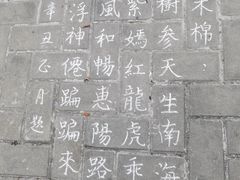 木棉，
樹參天生南海
紫嫣紅龍虎乘
風和暢惠陽路
浮神僊蹁蹁來
辛丑正月題